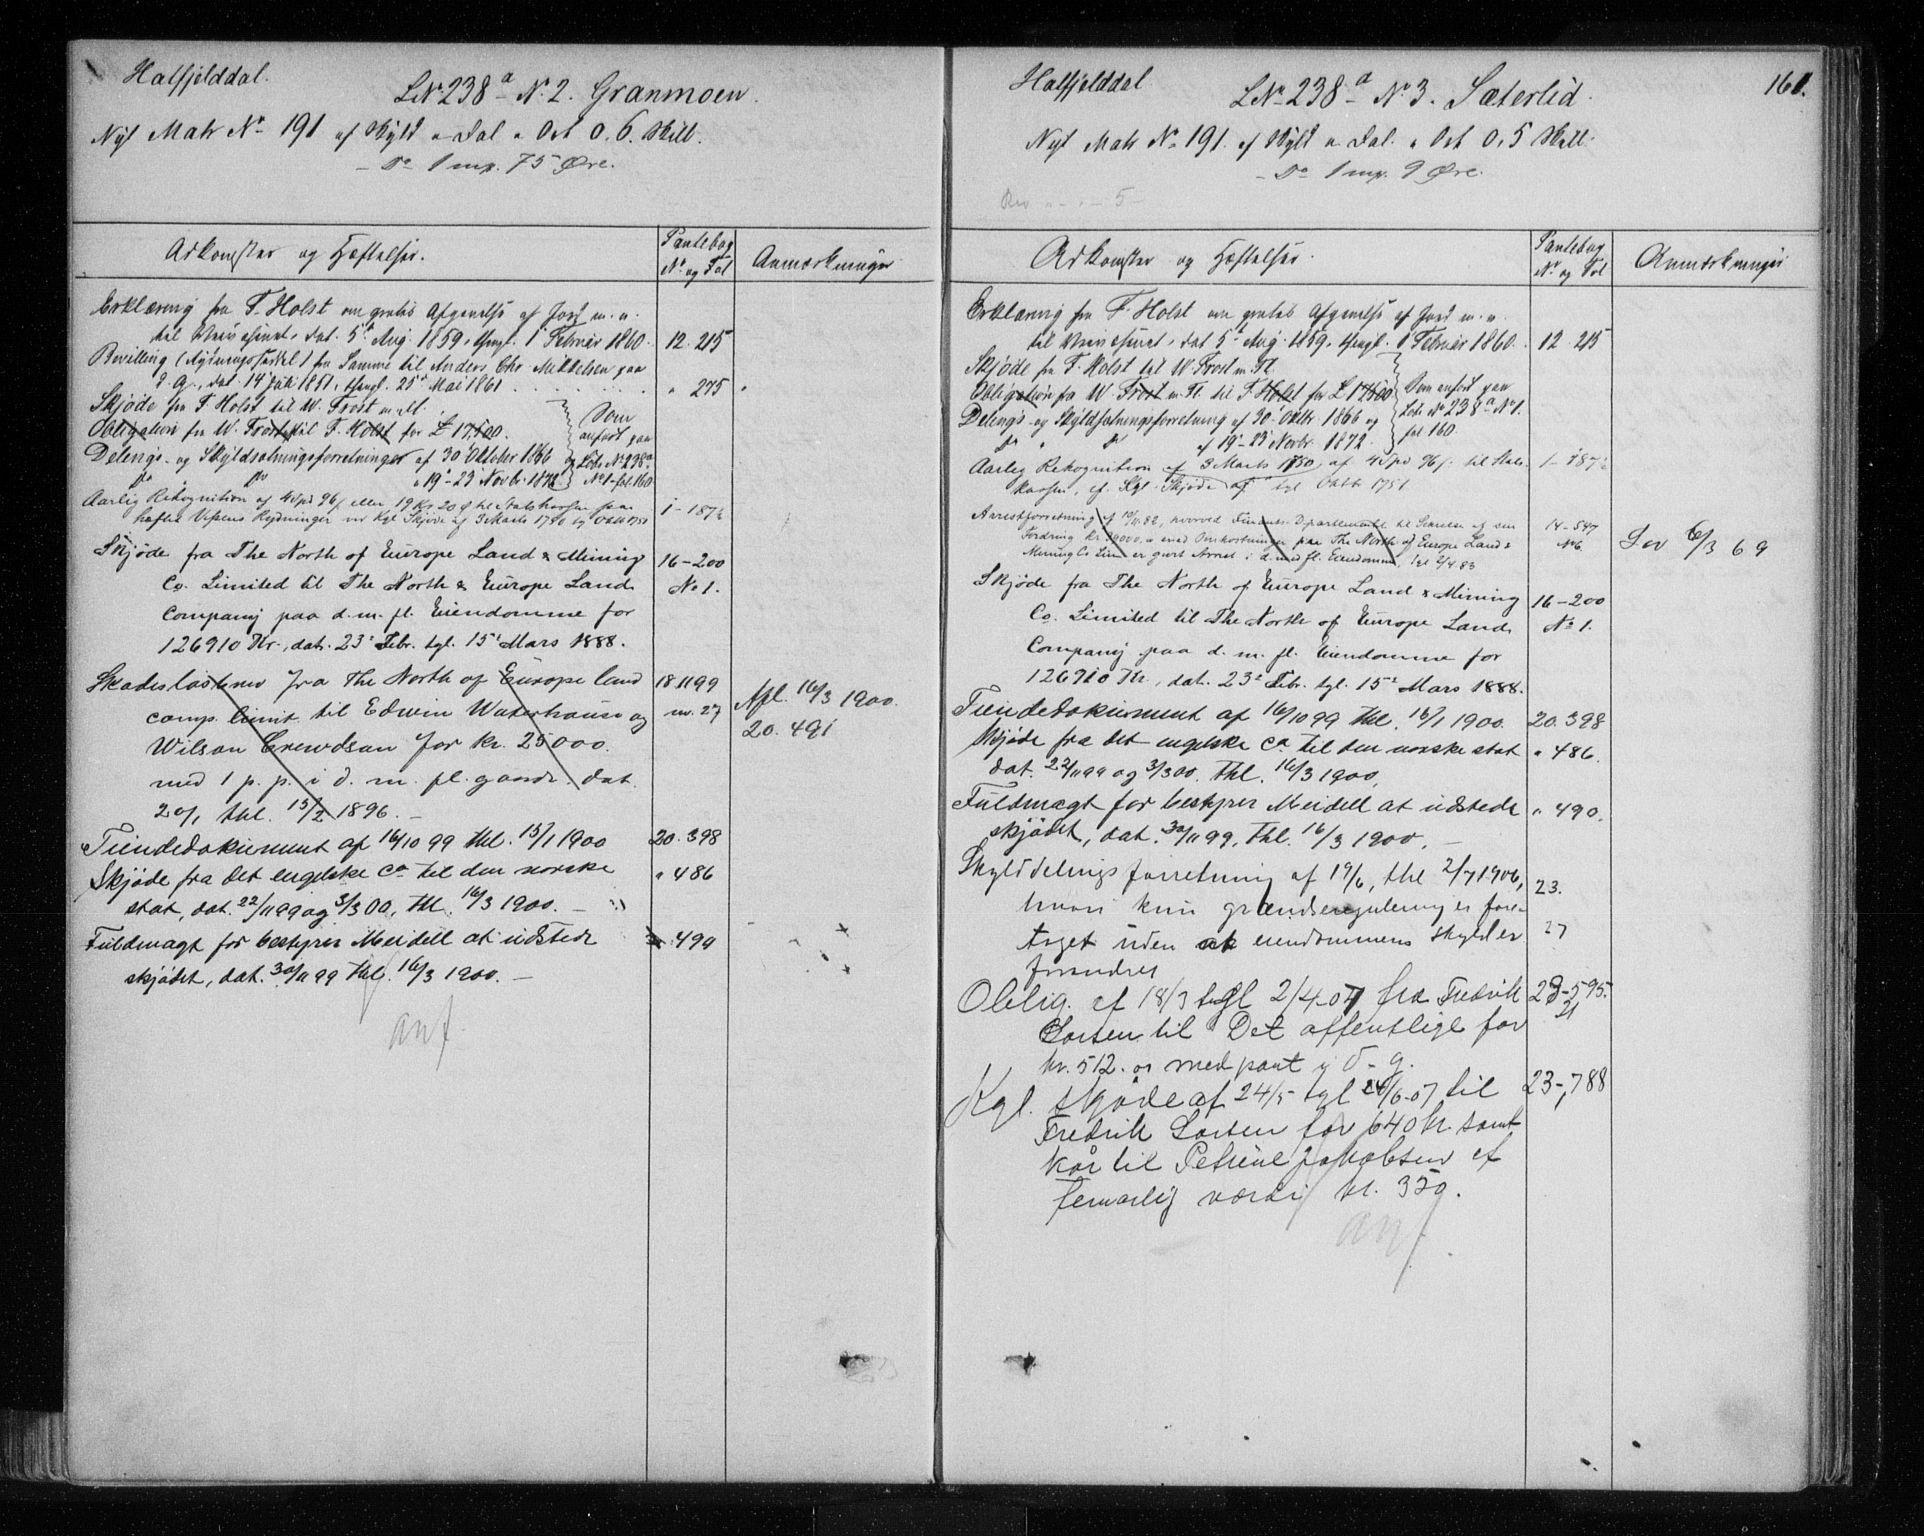 Hatfjelddal.
LNr 238a - N. 2. Granmoen.
Nyt Matr No 191 af Skyld " Dal " Ort 0, 6. Skill.
- Do 1 mp. 75 Øre.
Adkomster og Hæftelser.
Pantebog
No og Fol
Anmærkninger
Erklæring fra F. Holst om gratis Afgivelse af Jord m. v.
dat. 5te Aug. 1859, thingl. 1 Februar 1860. 12. 215
Bevilling (Rydningsseddel) fra Samme til Anders Chr Mikkelsen paa
d. G., dat. 14 Juli 1851, thingl. 25de Mai 1861 " 275 "
Skjøde fra F. Holst til W. Frost m. fl.
Obligation fra W. Frost til F. Holst for £ 17,500.
Som anført paa Løbe No 238a No 1 fol 160
Delings- og Skyldsætningsforretninger af 30 Oktober 1866 og
do do " 19 - 23 Novbr. 1872
Aarlig Rekognition af 4 Spd 96 s eller 19 Kr 20 Ø til Statskassen 1 - 187½
hæfter Vefsens Rydninger Kgl Skjøde af 3 Marts 1750 tgl Oktb 1751
Skjøde fra The North of Europe Land & Mining 16-200
Co. Limited til The North & Europe Land No 1.
Company paa d. m. fl. Eiendomme for
126910 Kr., dat. 23de Febr. tgl. 15de Mars 1888.
Skadesløsbrev fra The North of Europe land 18 1199
comp. limit. til Edwin Waterhouse og nr. 27
Afl. 16/3 1900.
20. 491
Wilson Crewdson for kr. 25000.
med 1 p. p. i d. m. fl. gaarde. dat.
20/1, thl. 15/2 1896. -
Tiendedokument af 16/10 99 thl. 15/1 1900 20. 398
Skjøde fra det engelske Co til den norske " 486
stat, dat. 22/11 99 og 3/3 00, thl. 16/3 1900. -
Fuldmagt for bestyrer Meidell at udstede 499
skjødet, dat. 30/11 99 thl. 16/3 1900. -
anf.
Hatfjelddal
161.
LNr 238a - No 3. Sæterlid.
Nyt Matr No 191. af Skyld " Dal. " Ort 0, 5 Skill.
- Do 1 mp. 9 Øre.
Rev " - " - 5 -
Adkomster og Hæftelser.
Pantebog
No og Fol
Anmærkninger
Erklæring fra F. Holst om gratis Afgivelse af Jord m. v.
dat 5te Aug. 1859, thingl. 1 Februar 1860. 12 215
Skjøde fra F. Holst til W. Frost m. Fl.
Obligation fra W. Frost m. Fl. til F. Holst for £ 17500
Som anført paa Løbe No 238a No 1. fol 160
Delings- og Skyldsætningsforretning af 30 Oktbr 1866 og
do " do af 19 - 23 Novbr. 1872.
Aarlig Rekognition af 3 Marts 1750, af 4 Spd 96 s. til Stats- 1 - 187½
kassen, cf. Kgl. Skjøde af tgl Oktb 1751
Arrestforretning af 10/11 82, hvorved Finants-Departementet til Sikerhed af sin 14-547
Fordring Kr. 9000. " med Omkostninger paa The North of Europe Land & No 6.
Lev 6/3 69
Mining Co Lim er gjort Arrest i d. m. fl. Eiendomme, tgl 2/4 83
Skjøde fra The North of Europe Land & Mining 16-200
Co. Limited til The North of Europe Land No 1.
Company paa d. m. fl. Eiendomme for
126910 Kr., dat. 23de Febr. tgl. 15de Mars 1888.
Tiendedokument af 16/10 99 thl. 15/1 1900. 20. 398
Skjøde fra det engelske Co til den norske stat " 486.
dat. 22/11 99 og 3/3 00. thl. 16/3 1900.
Fuldmagt for bestyrer Meidell at udstede " 490.
skjødet, dat. 30/11 99, thl. 16/3 1900. -
Skylddelingsforretning af 19/6, thl 2/7 1906, 23.
hvori kun grændseregulering er fore-
taget uden at eiendommens skyld er 27
forandret
Oblig. af 18/3 tgl 2/4-07 fra Fredrik 23-595.
Larsen til Det offentlige for 21
kr. 512. os med pant i d. g.
Kgl. skjøde af 24/5 tgl 24/6-07 til 23-,788
Fredrik Larsen for 640 kr. samt
kår til Petrine Jakobsen af
femaarlig værdi kr. 350.
anf.